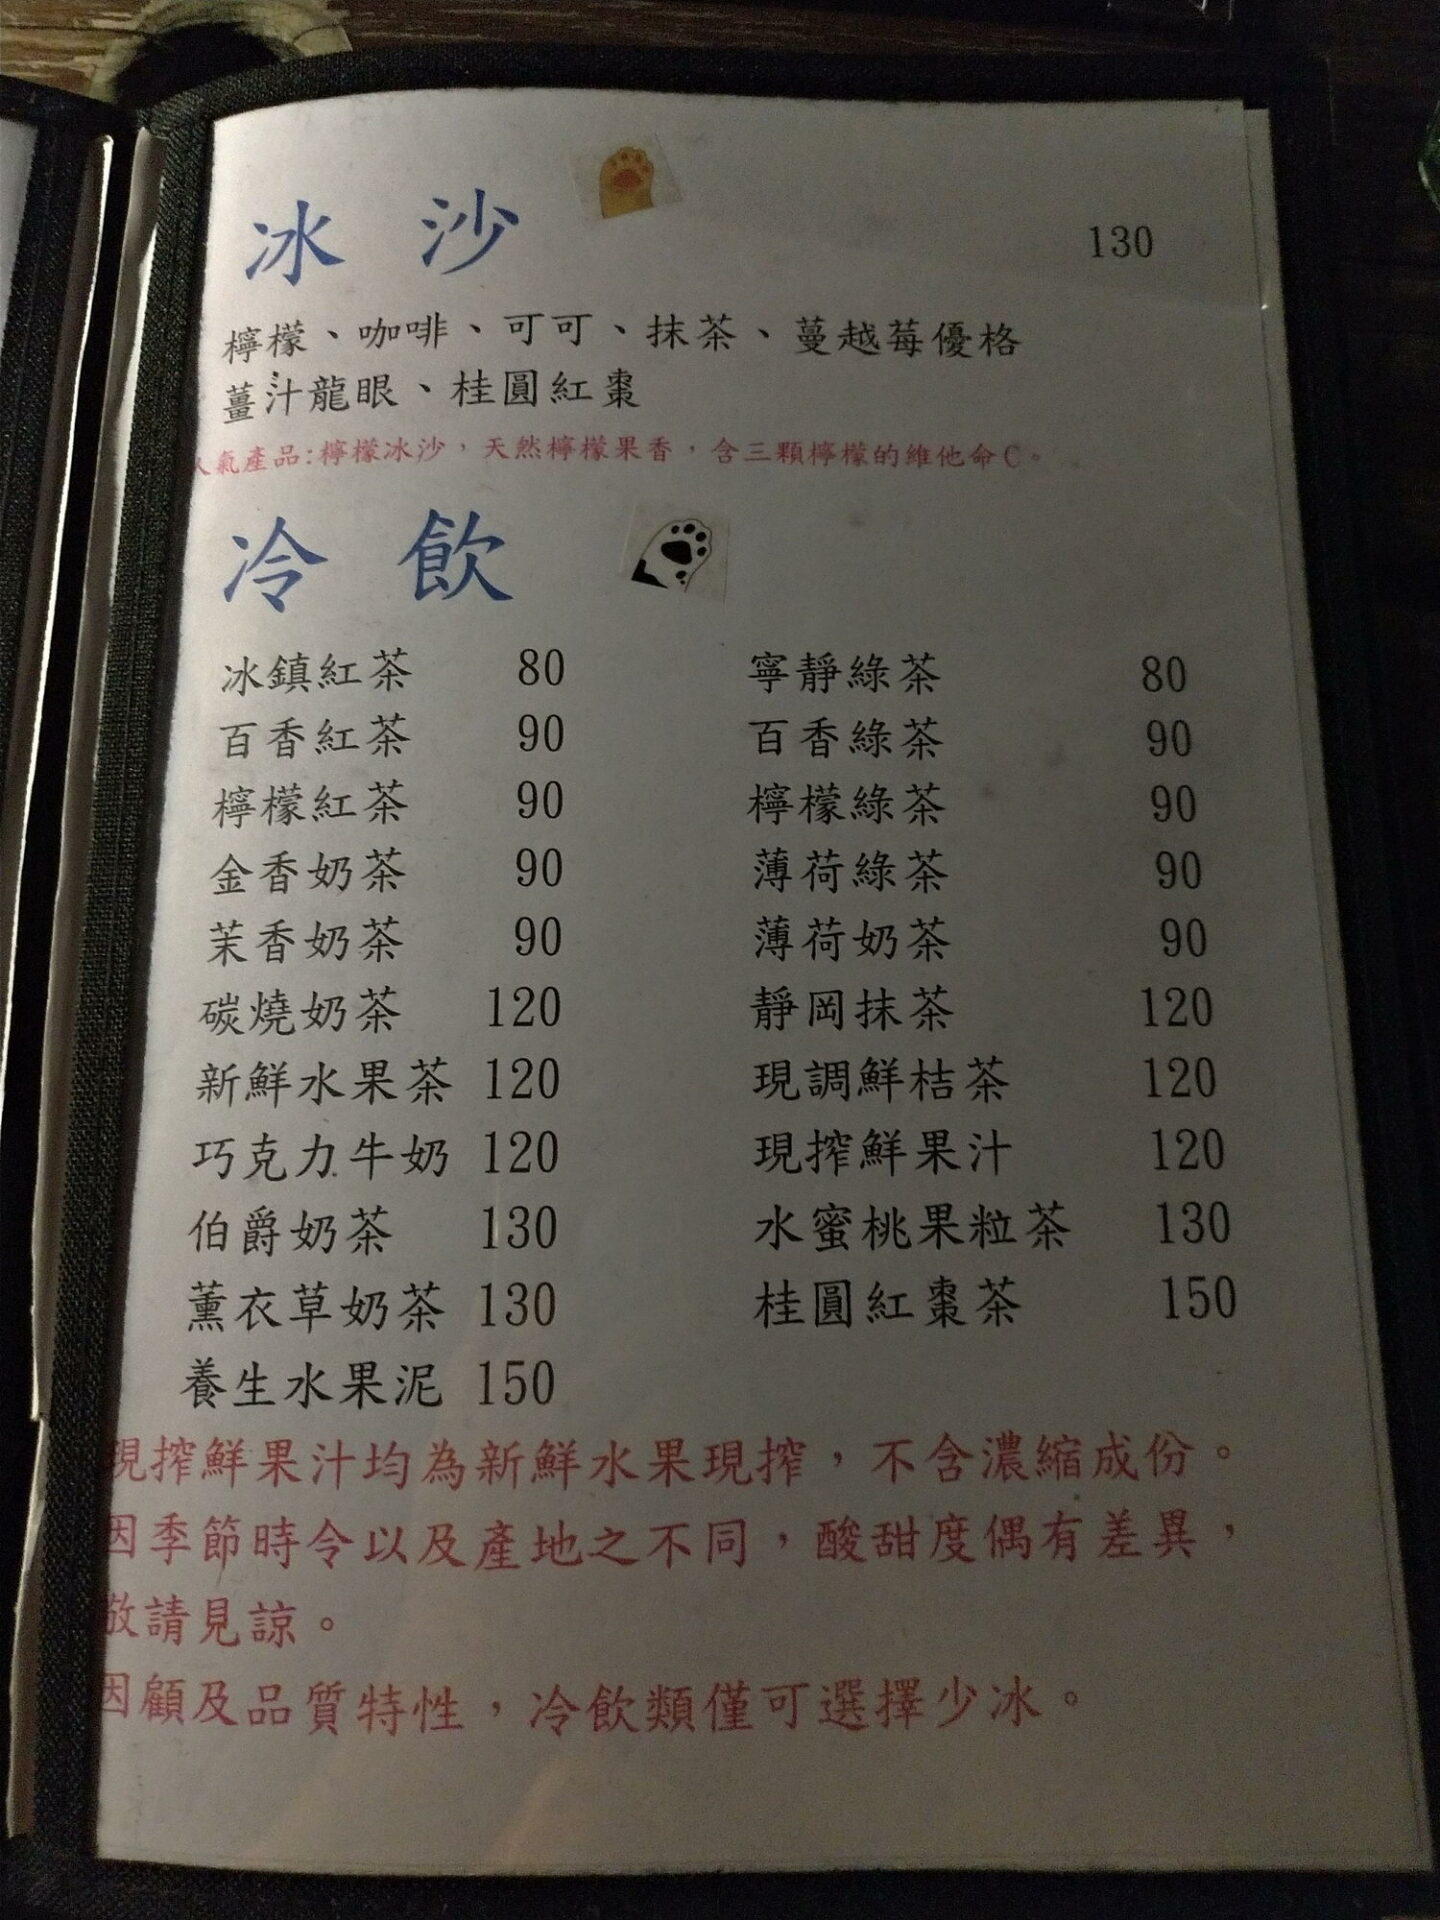 冰 沙 130
檸檬、咖啡、可可、抹茶、蔓越莓優格
薑汁龍眼、桂圓紅棗
人氣產品:檸檬冰沙，天然檸檬果香，含三顆檸檬的維他命C。
冷 飲
冰鎮紅茶 80 寧靜綠茶 80
百香紅茶 90 百香綠茶 90
檸檬紅茶 90 檸檬綠茶 90
金香奶茶 90 薄荷綠茶 90
茉香奶茶 90 薄荷奶茶 90
碳燒奶茶 120 靜岡抹茶 120
新鮮水果茶 120 現調鮮桔茶 120
巧克力牛奶 120 現搾鮮果汁 120
伯爵奶茶 130 水蜜桃果粒茶 130
薰衣草奶茶 130 桂圓紅棗茶 150
養生水果泥 150
現搾鮮果汁均為新鮮水果現搾，不含濃縮成份。
因季節時令以及產地之不同，酸甜度偶有差異，
敬請見諒。
因顧及品質特性，冷飲類僅可選擇少冰。